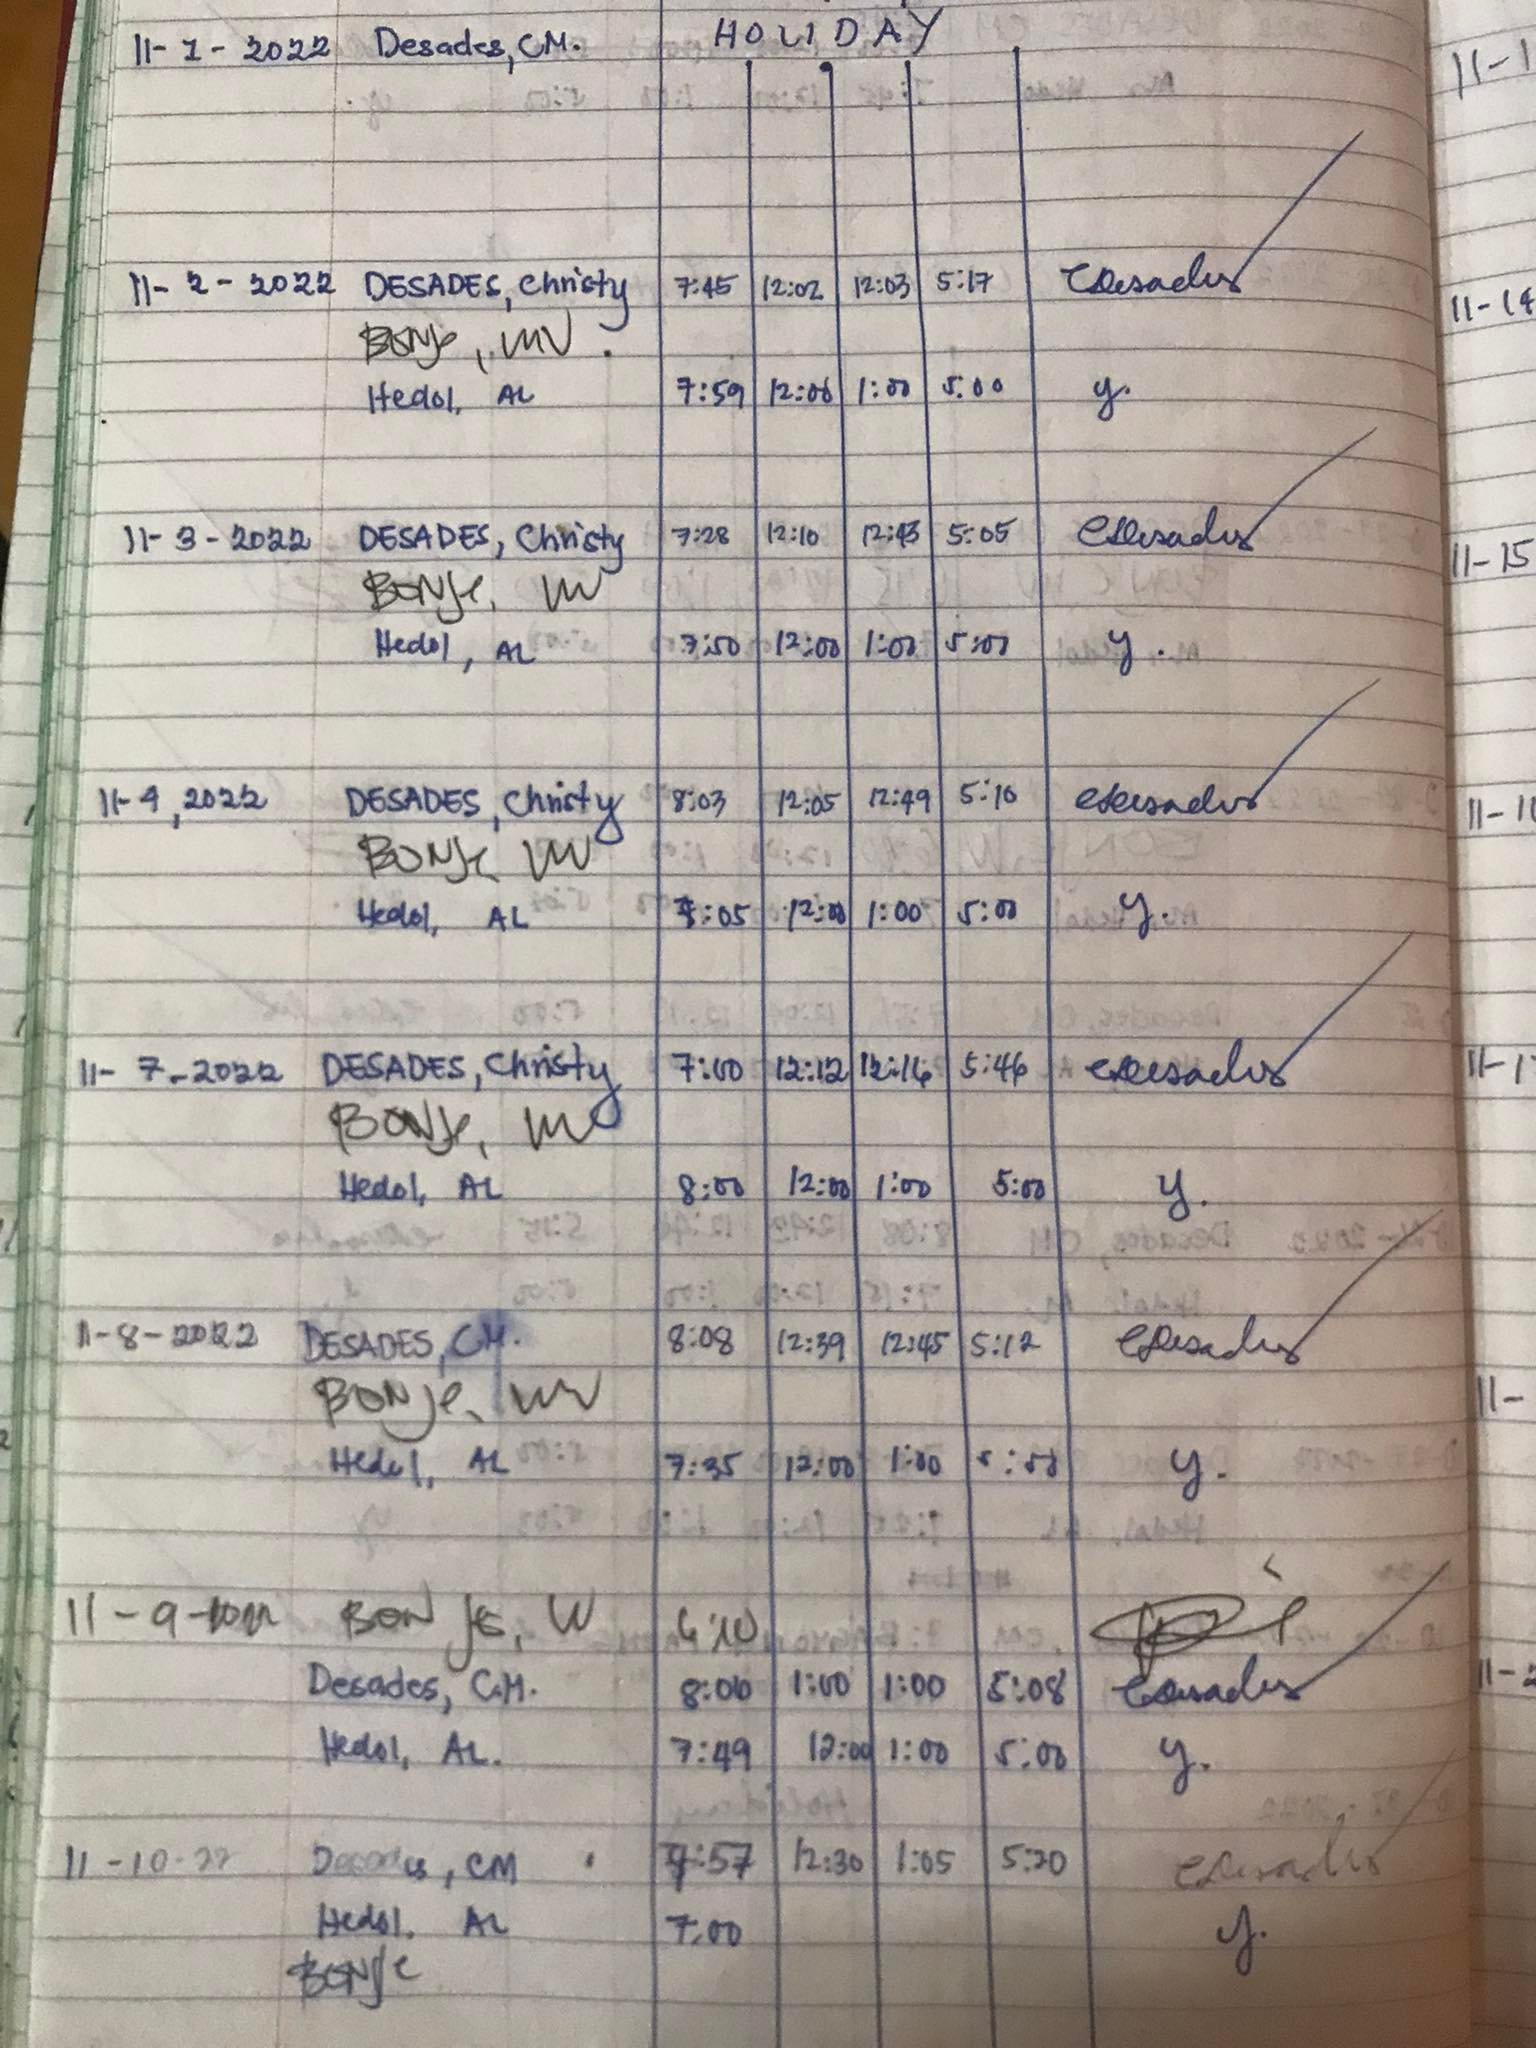 11-1-2022 Desades, CM. HOLIDAY
11-2-2022 DESADES, Christy 7:45 12:02 12:03 5:17 CDesades
BONJE, MV.
Hedol, AL 7:59 12:00 1:00 5:00 y.
11-3-2022 DESADES, Christy 7:28 12:10 12:43 5:05 CDesades
BONJE, MV
Hedol, AL 7:50 12:00 1:00 5:00 y.
11-4, 2022 DESADES, Christy 8:03 12:05 12:49 5:10 CDesades
BONJE, MV
Hedol, AL 7:05 12:00 1:00 5:00 y.
11-7-2022 DESADES, Christy 7:00 12:12 12:16 5:46 CDesades
BONJE, MV
Hedol, AL 8:00 12:00 1:00 5:00 y.
11-8-2022 DESADES, CM. 8:08 12:39 12:45 5:12 CDesades
BONJE, MV
Hedol, AL 7:35 12:00 1:00 5:00 y.
11-9-2022 BONJE, W
Desades, C.M. 8:00 1:00 1:00 5:08 CDesades
Hedol, AL. 7:49 12:00 1:00 5:00 y.
11-10-22 Desades, CM 7:57 12:30 1:05 5:20 CDesades
Hedol, AL 7:00 y.
BONJE
11-1
11-14
11-15
11-1
11-1
11-
11-2